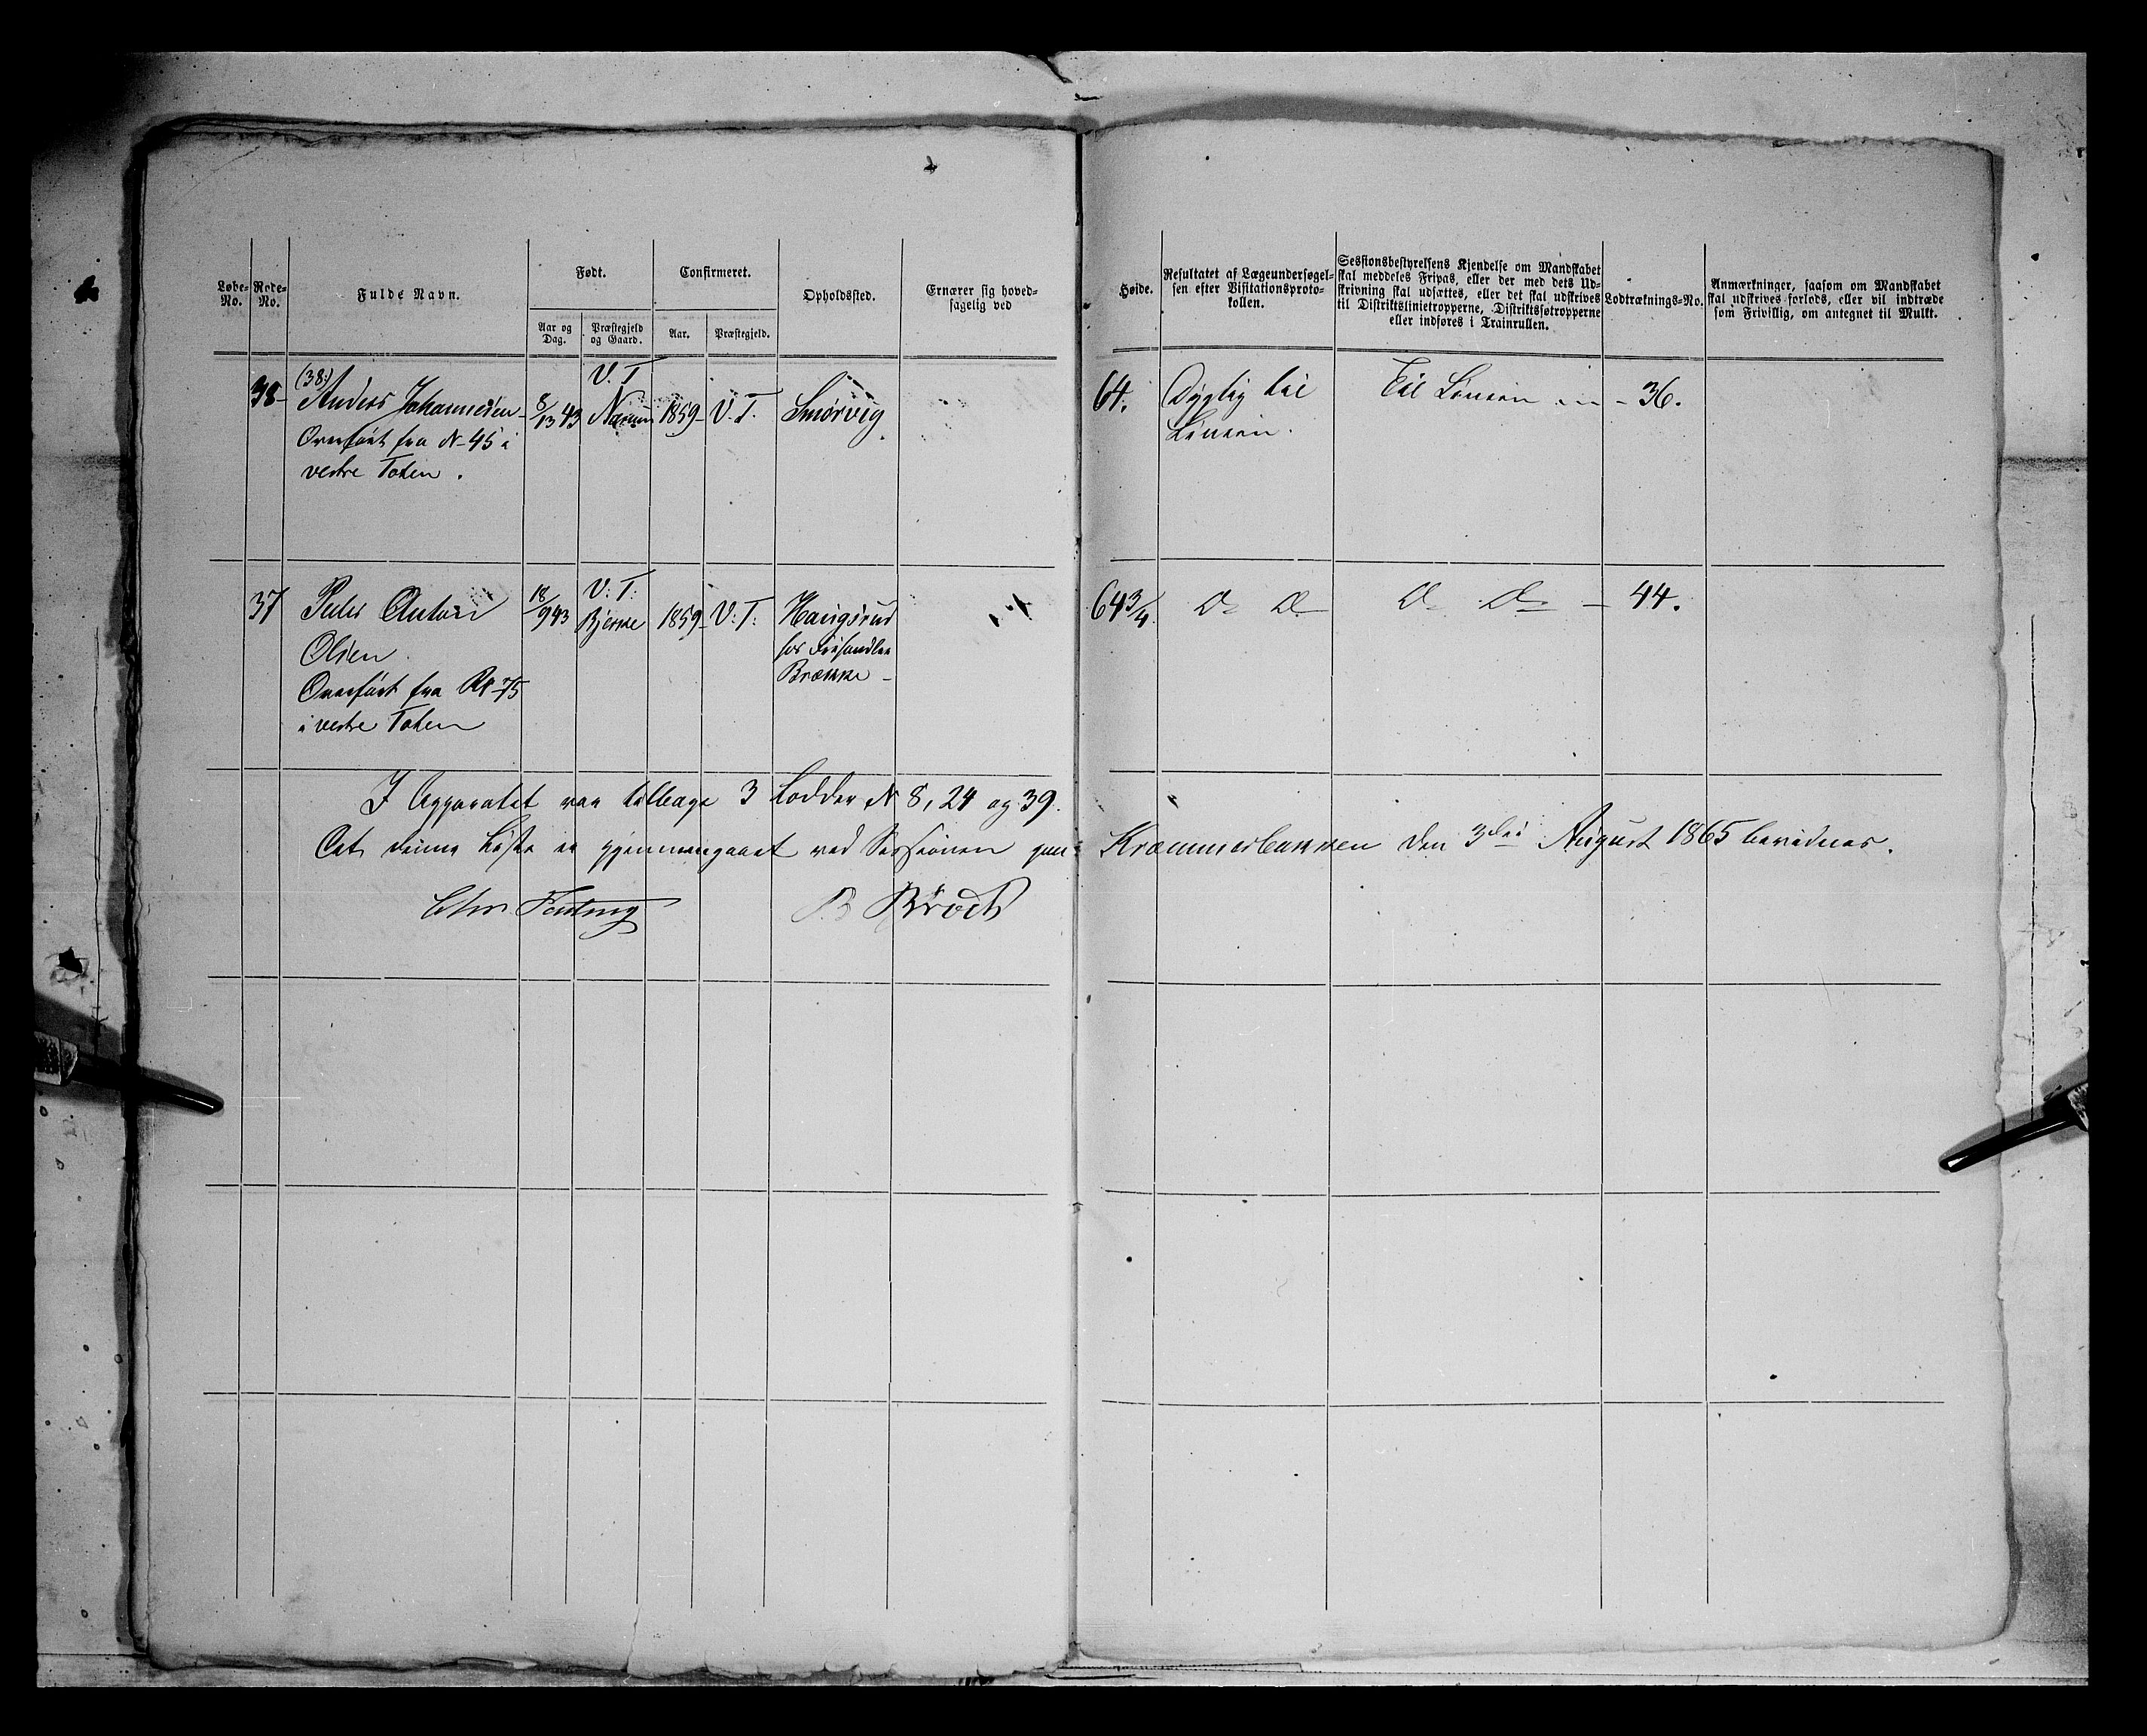 Løbe-No.
Rode-No.
Fulde Navn.
Født.
Aar og Dag.
Præstegjeld og Gaard.
Confirmeret.
Aar.
Præstegjeld.
Opholdssted.
Ernærer sig hovedsagelig ved
Høide.
Resultatet af Lægeundersøgelsen efter Visitationsprotokollen.
Sessionsbestyrelsens Kjendelse om Mandskabet skal meddeles Fripas, eller der med dets Udskrivning skal udsættes, eller det skal udskrives til Distriktslinietropperne, Distriktsfotropperne eller indføres i Trainrullen.
Lodtræknings-No.
Anmærkninger, saasom om Mandskabet skal udskrives forlods, eller vil indtræde som Frivillig, om antegnet til Mulkt.
(38:) V. T
38- Anders Johannesen 43 1859- V. T. Smørvig 64. Dygtig til Til Linien - 36.
Overført fra N 45 i Linien.
vestre Toten.
V: T:
37 Peder Anton 18/9 43 Bjerke 1859- V: T: Haugsrud 64 3/4 Do Do Do Do - 44.
Olsen hos
Overført fra No 75 Brække -
i vestre Toten
I Apparatet var tilbage 3 Lodder N 8, 24 og 39.
At denne Liste er gjennemgaaet ved Sessionen paa Kræmmerbakken den 3die August 1865 bevidnes.
B Brock